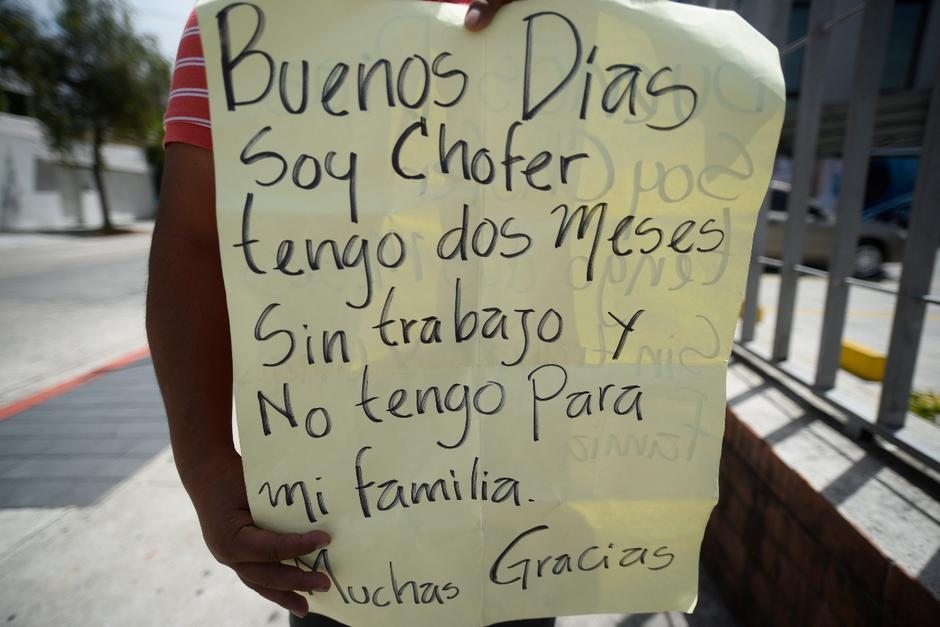 Buenos Días
Soy Chofer
tengo dos Meses
Sin trabajo y
No tengo Para
mi familia.
Muchas Gracias